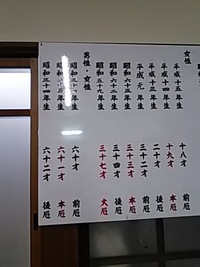 女性
平成十五年生 十八才 前厄
平成十四年生 十九才 本厄
平成十三年生 二十才 後厄
平成元年生 三十二才 前厄
昭和六十三年生 三十三才 本厄
昭和六十二年生 三十四才 後厄
昭和五十九年生 三十七才 大厄
男性・女性
昭和三十六年生 六十才 前厄
昭和三十五年生 六十一才 本厄
昭和三十四年生 六十二才 後厄